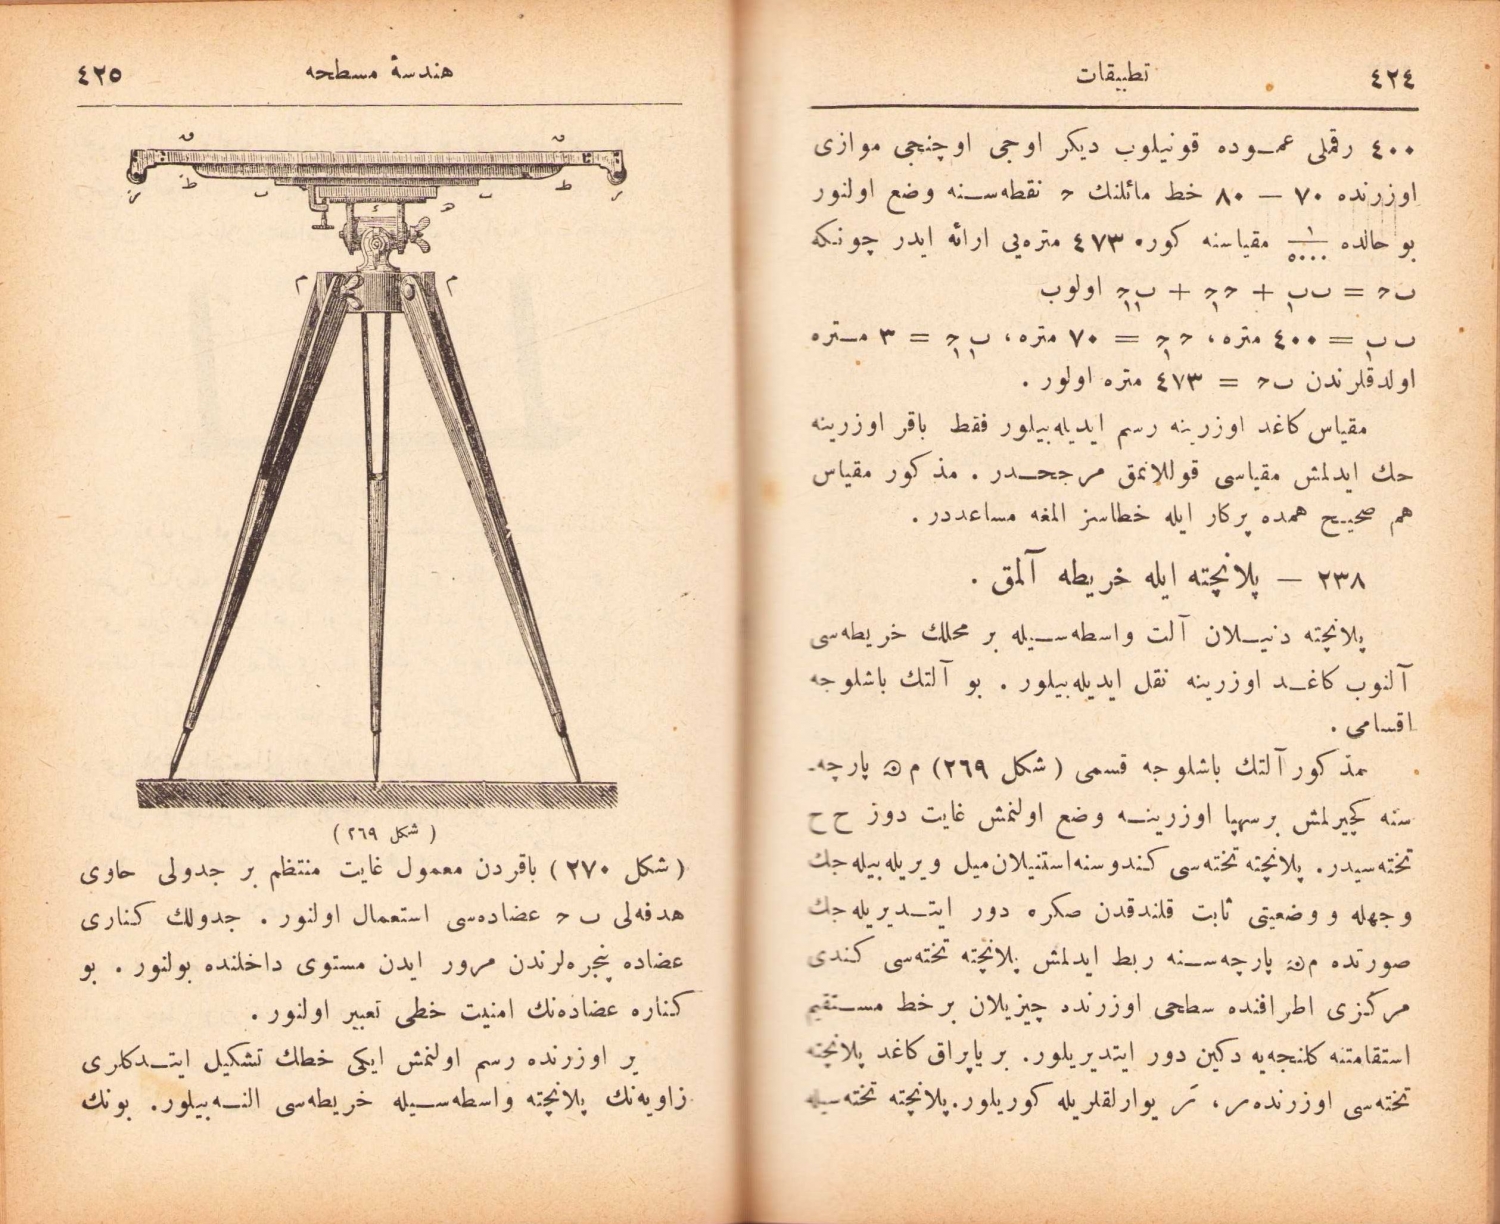 ٤٢٤
تطبيقات
٤٠٠ رقملى عمـوده قونيلوب ديكر اوجى اوچنجى موازى
اوزرنده ٧٠ — ٨٠ خط مائلنك ﺣ نقطه‌سـنه وضع اولنور
بو حالده ١/٥٠٠٠ مقياسنه كوره ٤٧٣ متره‌يى ارائه ايدر چونكه
اولوب
= ٤٠٠ متره، = ٧٠ متره، = ٣ متره
اولدقلرندن ب ﺣ = ٤٧٣ متره اولور .
مقياس كاغد اوزرينه رسم ايديله‌بيلور فقط باقر اوزرينه
حك ايدلمش مقياسى قوللانمق مرجحـدر . مذكور مقياس
هم صحيح همده پركار ايله خطاسز المغه مساعددر .
٢٣٨ — پلانچته ايله خريطه آلمق .
پلانچته دنيـلان آلت واسطه‌سـيله بر محلك خريطه‌سى
آلنوب كاغـد اوزرينه نقل ايديله‌بيلور . بو آلتك باشلوجه
اقسامى .
مذكور آلتك باشلوجه قسمى ( شكل ٢٦٩ ) م ﻫ پارچه‌
سنه كچيرلمش برسهپا اوزرينـه وضع اولنمش غايت دوز ح ح
تخته‌سيدر. پلانچته تخته‌سى كندوسنه استنيلان ميل ويريله‌بيله‌جك
وجهله ووضعيتى ثابت قلندقدن صكره دور ايتـديريله‌جك
صورتده م ﻫ پارچه‌سـنه ربط ايدلمش پلانچته تخته‌سى كندى
مركزى اطرافنده سطحى اوزرنده چيزيلان برخط مسـتقيم
استقامتنه كلنجه‌يه دكين دور ايتديريلور. بر ياپراق كاغد پلانچته
تخته‌سى اوزرنده ر ، رَ يوارلقلريله كوريلور. پلانچته تخته‌سيله
٤٢٥
هندسهٔ مسطحه
ں ں
ر ط ب ء ﻫ ب ط ر
م م
( شكل ٢٦٩ )
( شكل ٢٧٠ ) باقردن معمول غايت منتظم بر جدولى حاوى
هدفه‌لى ب ﺣ عضاده‌سى استعمال اولنور . جدولك كنارى
عضاده پنجره‌لرندن مرور ايدن مستوى داخلنده بولنور . بو
كناره عضاده‌نك امنيت خطى تعبير اولنور .
ير اوزرنده رسم اولنمش ايكى خطك تشكيل ايتـدكلرى
زاويه‌نك پلانچته واسطه‌سـيله خريطه‌سى النـه‌بيلور. بونك